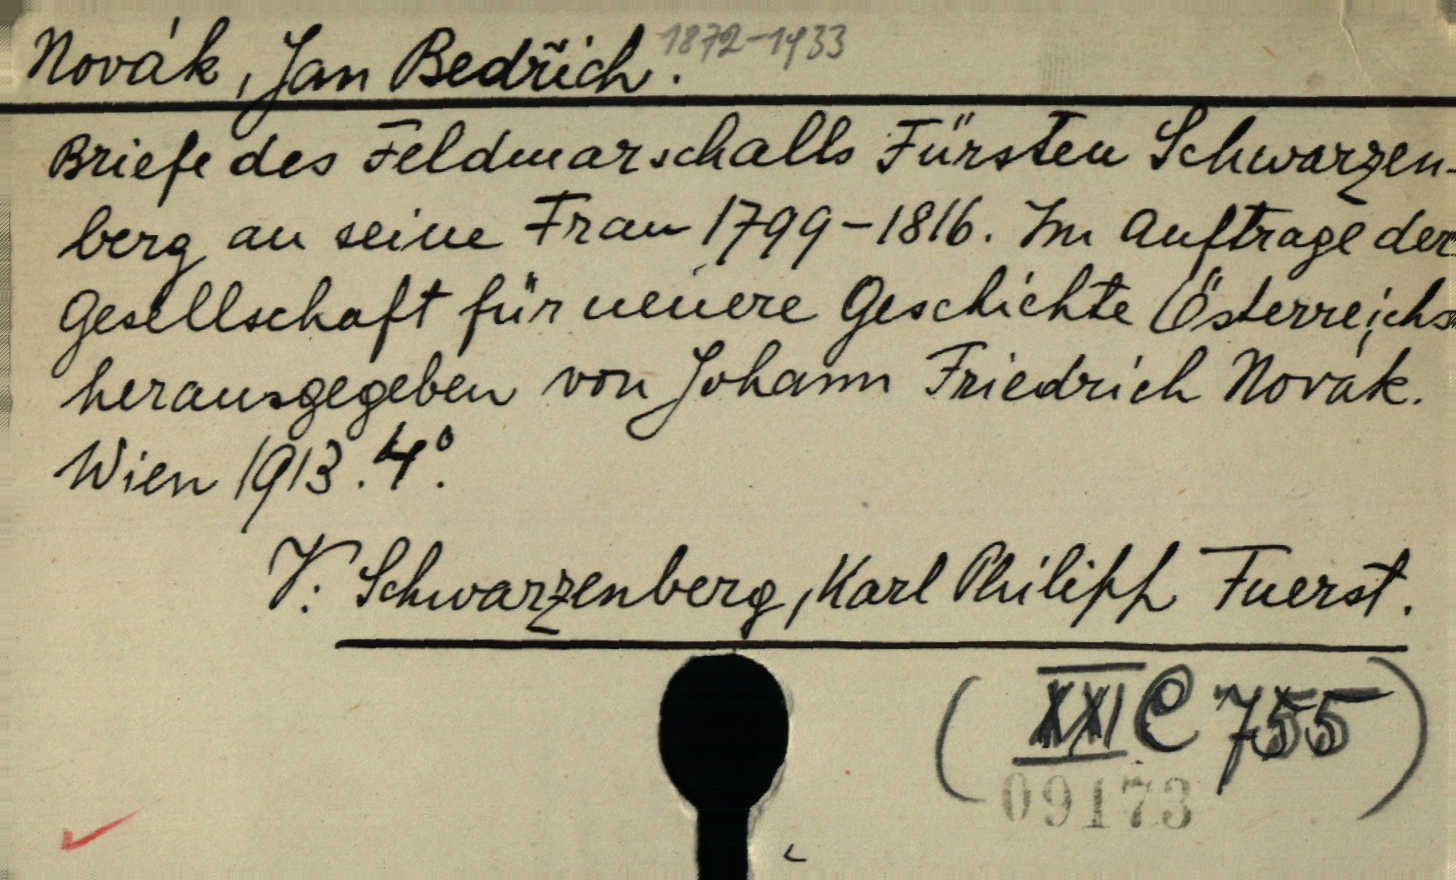 Novák, Jan Bedřich. 1872-1933
Briefe des Feldmarschalls Fürsten Schwarzen-
berg an seine Frau 1799-1816. Im Auftrage der
Gesellschaft für neuere Geschichte Österreichs
herausgegeben von Johann Friedrich Novák.
Wien 1913. 4°.
V: Schwarzenberg, Karl Philipp Fuerst.
(XXI C 755)
09173